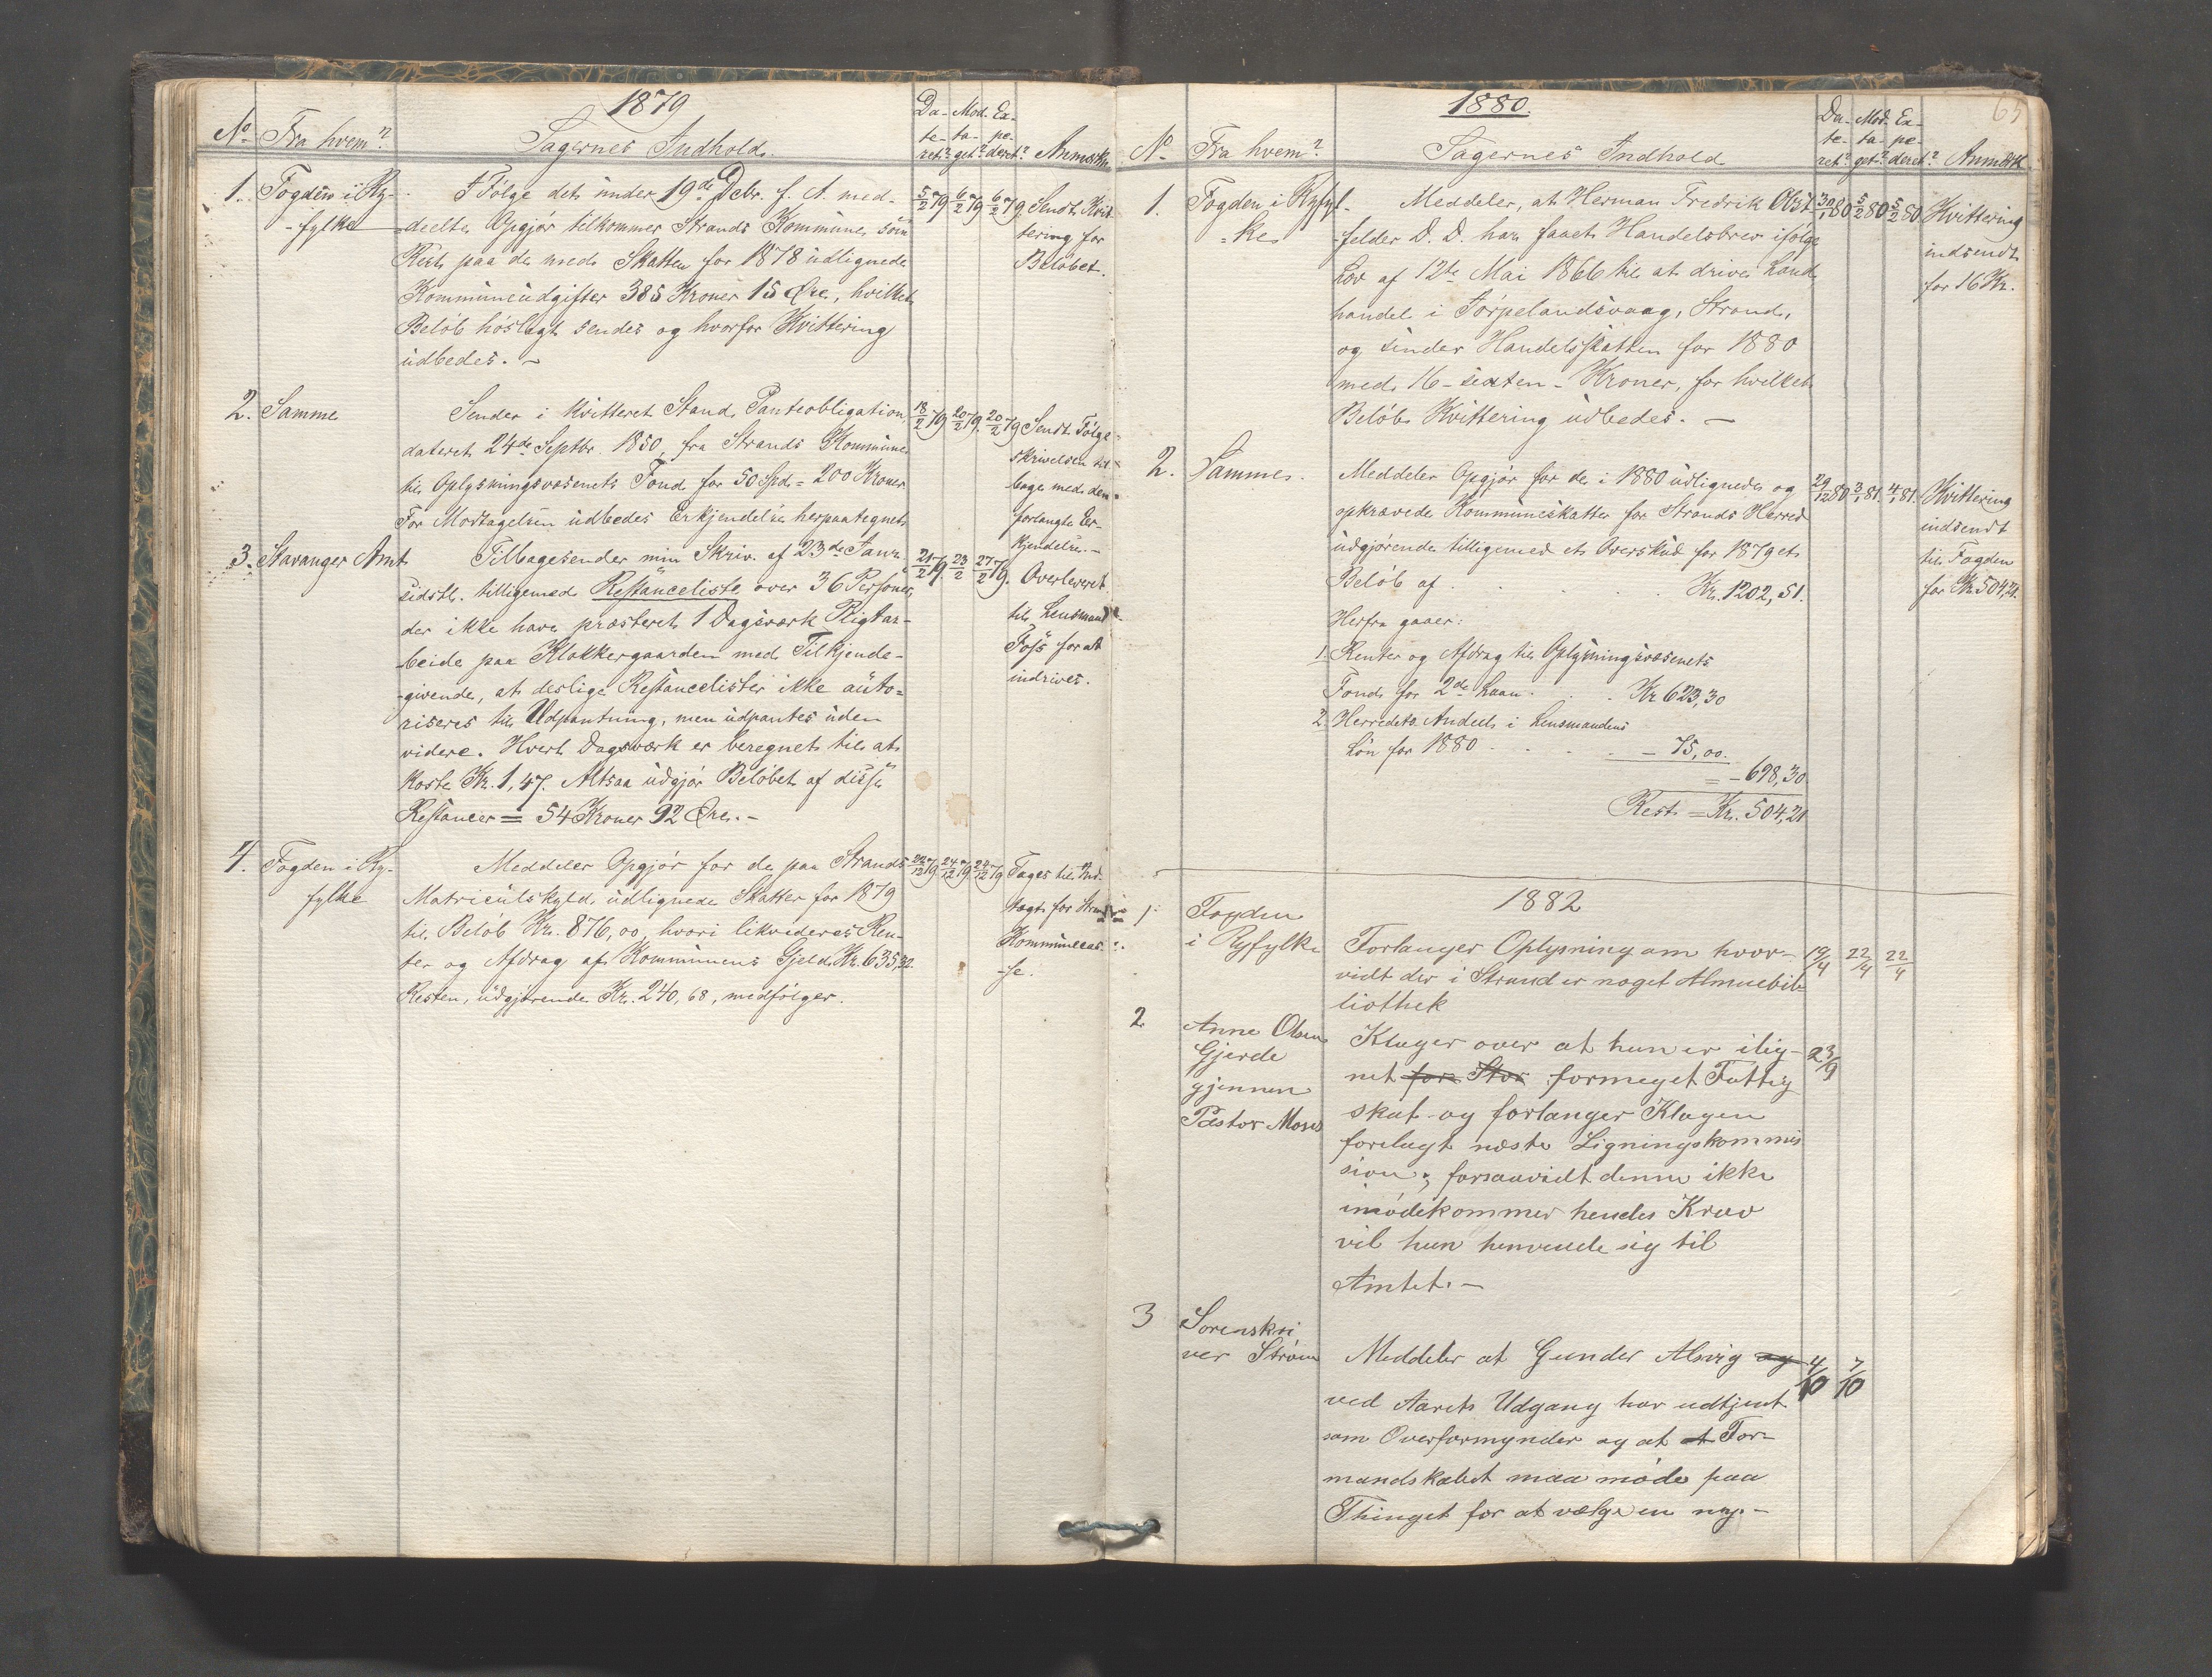 1879
No. Fra hvem? Sagernes Indhold. Da-te-ret? Mod-ta-get? Ex-pe-deret? Anmærkn.
1. Fogden i Ry-
-fylke
I Følge dets under 19de Debr. f. A. med-
deelte Opgjør tilkommer Strands Kommune som
Rest paa de med Skatten for 1878 udlignede
Kommuneudgifter 385 Kroner 15 Øre, hvilket
Beløb hoslagt sendes og hvorfor Kvittering
udbedes. -
5/2 79 6/2 79 6/2 79
Sendt Kvit-
tering for
Beløbet.
2. Samme
Sender i kvitteret Stand Panteobligation,
dateret 24de Septbr. 1850, fra Strands Kommune
til Oplysningsvæsenets Fond for 50 Spd. = 200 Kroner
For Modtagelsen udbedes Erkjendelse herpaategnet
18/2 79 20/2 79. 20/2 79
Sendt Følge-
skrivelsen til-
bage med den
forlangte Er-
kjendelse. -
3. Stavanger Amt
Tilbagesender min Skriv. af 23de Janr.
sidstl. tilligemed Restanceliste over 36 Personer,
der ikke have præsteret 1 Dagsværk Pligtar-
-beide paa Klokkergaarden med Tilkjende-
-givende, at deslige Restancelister ikke auto-
riseres til Udpantning, men udpantes uden
videre. Hvert Dagsværk er beregnet til at
koste Kr. 1,47. Altsaa udgjør Beløbet af disse
Restancer = 54 Kroner 92 Øre. -
21/2 79. 23/2 27/2 79.
Overleveret
til Lensmand
Fojs for at
indrives.
4. Fogden i Ry-
fylke
Meddeler Opgjør for de paa Strands
Matriculskyld udlignede Skatter for 1879
til Beløb Kr. 876,00, hvori likvideres Ren-
ter og Afdrag af Kommunens Gjeld Kr. 635,32.
Resten, udgjørende Kr. 240,68, medfølger.
22/12 79 24/12 79 24/12 79
Tages til Ind-
tægt for Strands
Kommunecas-
-se.
65
1880.
No. Fra hvem? Sagernes Indhold Da-te-ret? Mod-ta-get? Ex-pe-deret? Anmærk
1. Fogden i Ryfyl-
-ke
Meddeler, at Herman Fredrik
-felder D. D. har faaet Handelsbrev ifølge
Lov af 12te Mai 1866 til at drive Land-
handel i Jørpelandsvaag, Strand,
og sender Handelsskatten for 1880
med 16 - sexten - Kroner, for hvilket
Beløb Kvittering udbedes. -
30/1 80 5/2 80 5/2 80
Kvittering
indsendt
for 16 Kr.
2. Samme.
Meddeler Opgjør for de i 1880 udlignede og
opkrævede Kommuneskatter for Strands Herred
udgjørende tilligemed et Overskud for 1879 et
Beløb af . . . . . Kr. 1202,51.
Herfra gaaer:
1. Renter og Afdrag til Oplysningsvæsenets
Fond for 2de Laan . . . Kr 623,30
2. Herredets Andeel i Lensmandens
Løn for 1880 . . . . - 75,00.
= - 698,30
Rest = Kr. 504,21
29/12 80 3/1 81. 4/1 81.
Kvittering
indsendt
til Fogden
for Kr 504,21.
1882
1. Fogden
i Ryfylke
Forlanger Oplysning om hvor-
vidt der i Strand er noget Almuebib-
liothek
19/4 22/4 22/4
2 Anne Olsen
Gjerde
gjennem
Pastor Moses
Klager over at hun er ilig-
net for Stor formeget Fattig
skat og forlanger Klagen
forelagt næste Ligningskommis
sion; forsaavidt denne ikke
imødekommer hendes Krav
vil hun henvende sig til
Amtet. -
23/9
3 Sorenskri
ver Strøm
Meddeler at Gunder Alsvig og
ved Aarets Udgang har udtjent
som Overformynder og at at For-
mandskabet maa møde paa
Thinget for at vælge en ny. -
4/10 7/10